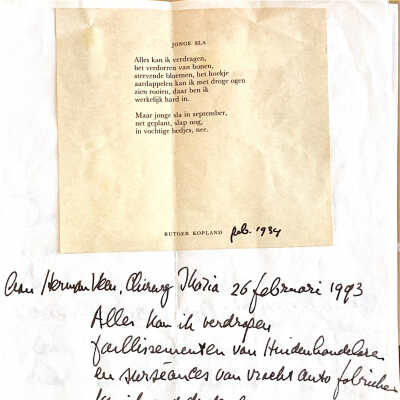 JONGE SLA
Alles kan ik verdragen,
het verdorren van bonen,
stervende bloemen, het hoekje
aardappelen kan ik met droge ogen
zien rooien, daar ben ik
werkelijk hard in.
Maar jonge sla in september,
net geplant, slap nog,
in vochtige bedjes, nee.
RUTGER KOPLAND feb. 1984
Aan Herman Veen, Chirurg 26 februari 1993
Alles kan ik verdragen
faillissementen van Huidenhandelaren
en surséances van vrachtauto fabrieken